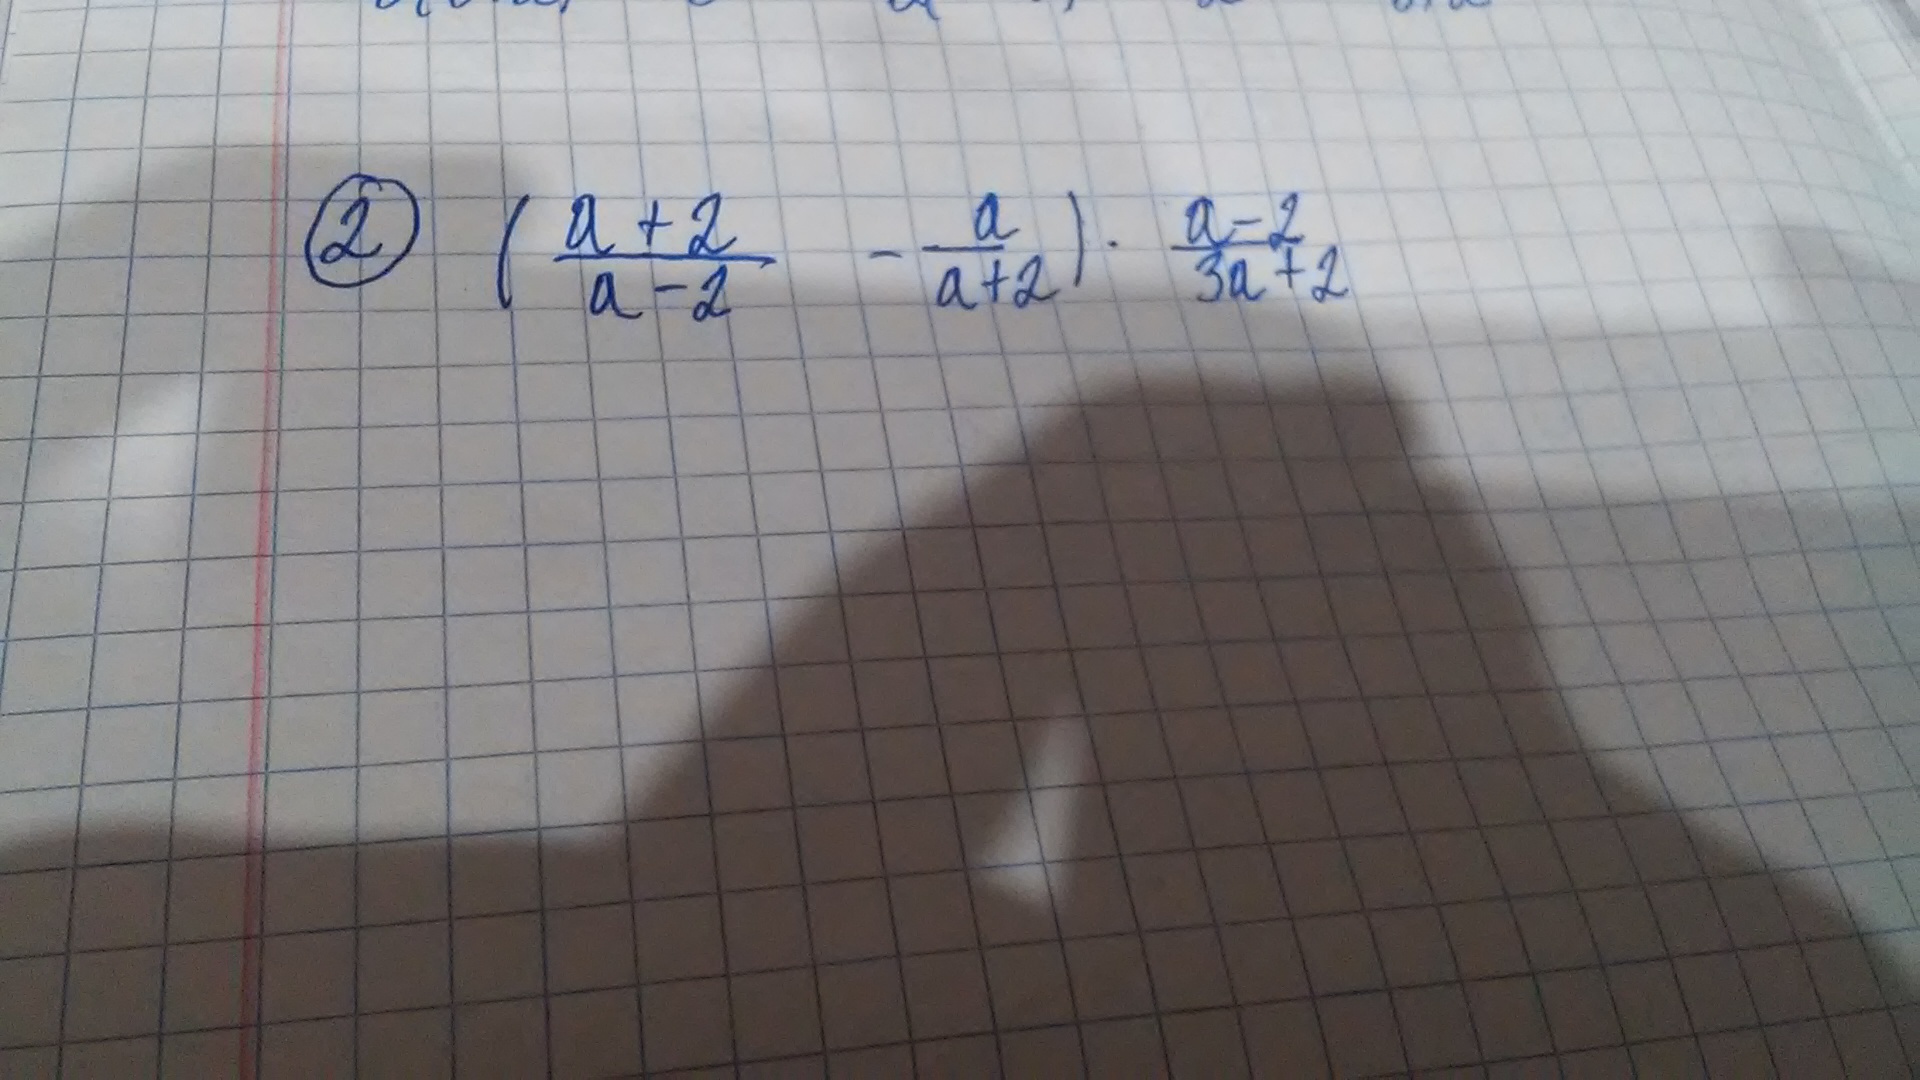 ② ( \frac{a+2}{a-2} - \frac{a}{a+2} ) · \frac{a-2}{3a+2}